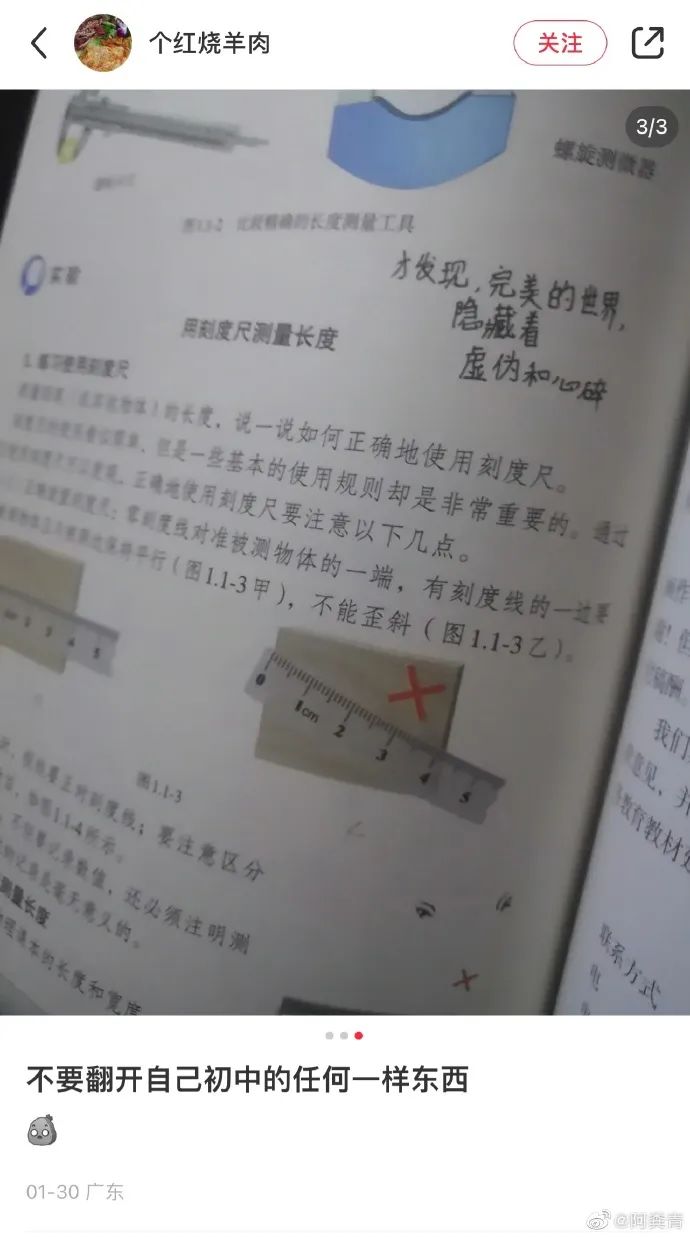 个红烧羊肉
关注
3/3
螺旋测微器
图1.1-2 比较精确的长度测量工具
实验
才发现，完美的世界，
隐藏着
虚伪和心碎
用刻度尺测量长度
1. 练习使用刻度尺
的长度，说一说如何正确地使用刻度尺。
但是一些基本的使用规则却是非常重要的。通过
正确地使用刻度尺要注意以下几点。
零刻度线对准被测物体的一端，有刻度线的一边要
保持平行（图1.1-3甲），不能歪斜（图1.1-3乙）。
0 1cm 2 3 4 5
图1.1-3
刻度线；要注意区分
如图1.1-4所示。
还必须注明测
是毫无意义的。
测量长度
课本的长度和宽度
我们
意见，并
教育教材
联系方式
电
不要翻开自己初中的任何一样东西
01-30 广东
@阿龚青